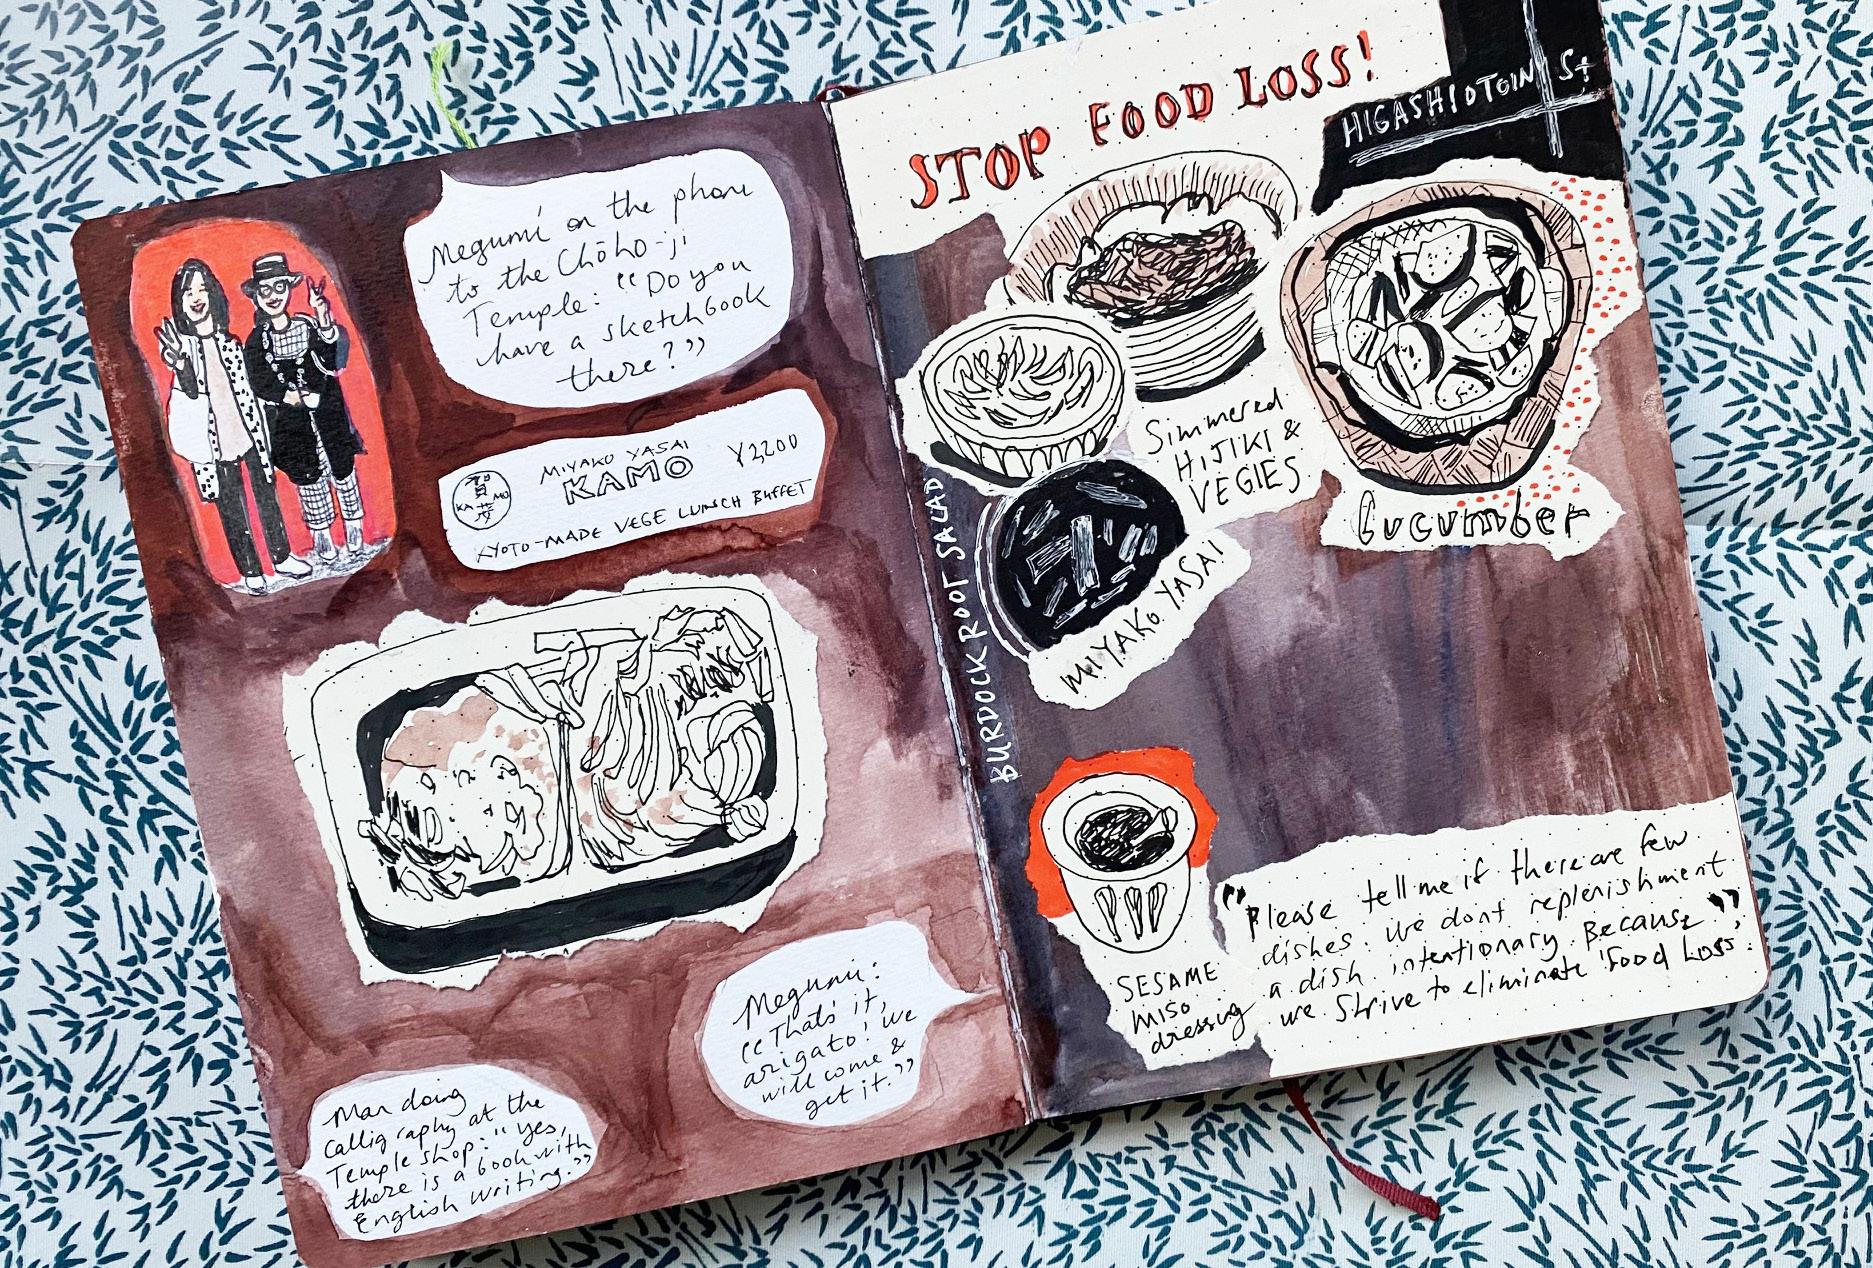 Megumi on the phone
to the Chōhō-ji
Temple: "Do you
have a sketchbook
there?"
賀茂
KAMO
MIYAKO YASAI
KAMO
¥2,200
KYOTO-MADE VEGE LUNCH BUFFET
Megumi:
"That's it,
arigato! We
will come &
get it."
Man doing
calligraphy at the
Temple shop: "Yes,
there is a book with
English writing."
STOP FOOD LOSS!
HIGASHIOTOIN St
Simmered
HIJIKI &
VEGIES
Cucumber
BURDOCK ROOT SALAD
MIYAKO YASAI
SESAME
MISO
dressing
"Please tell me if there are few
dishes. We dont replenishment
a dish intentionary. Because
we strive to eliminate 'Food Loss'."